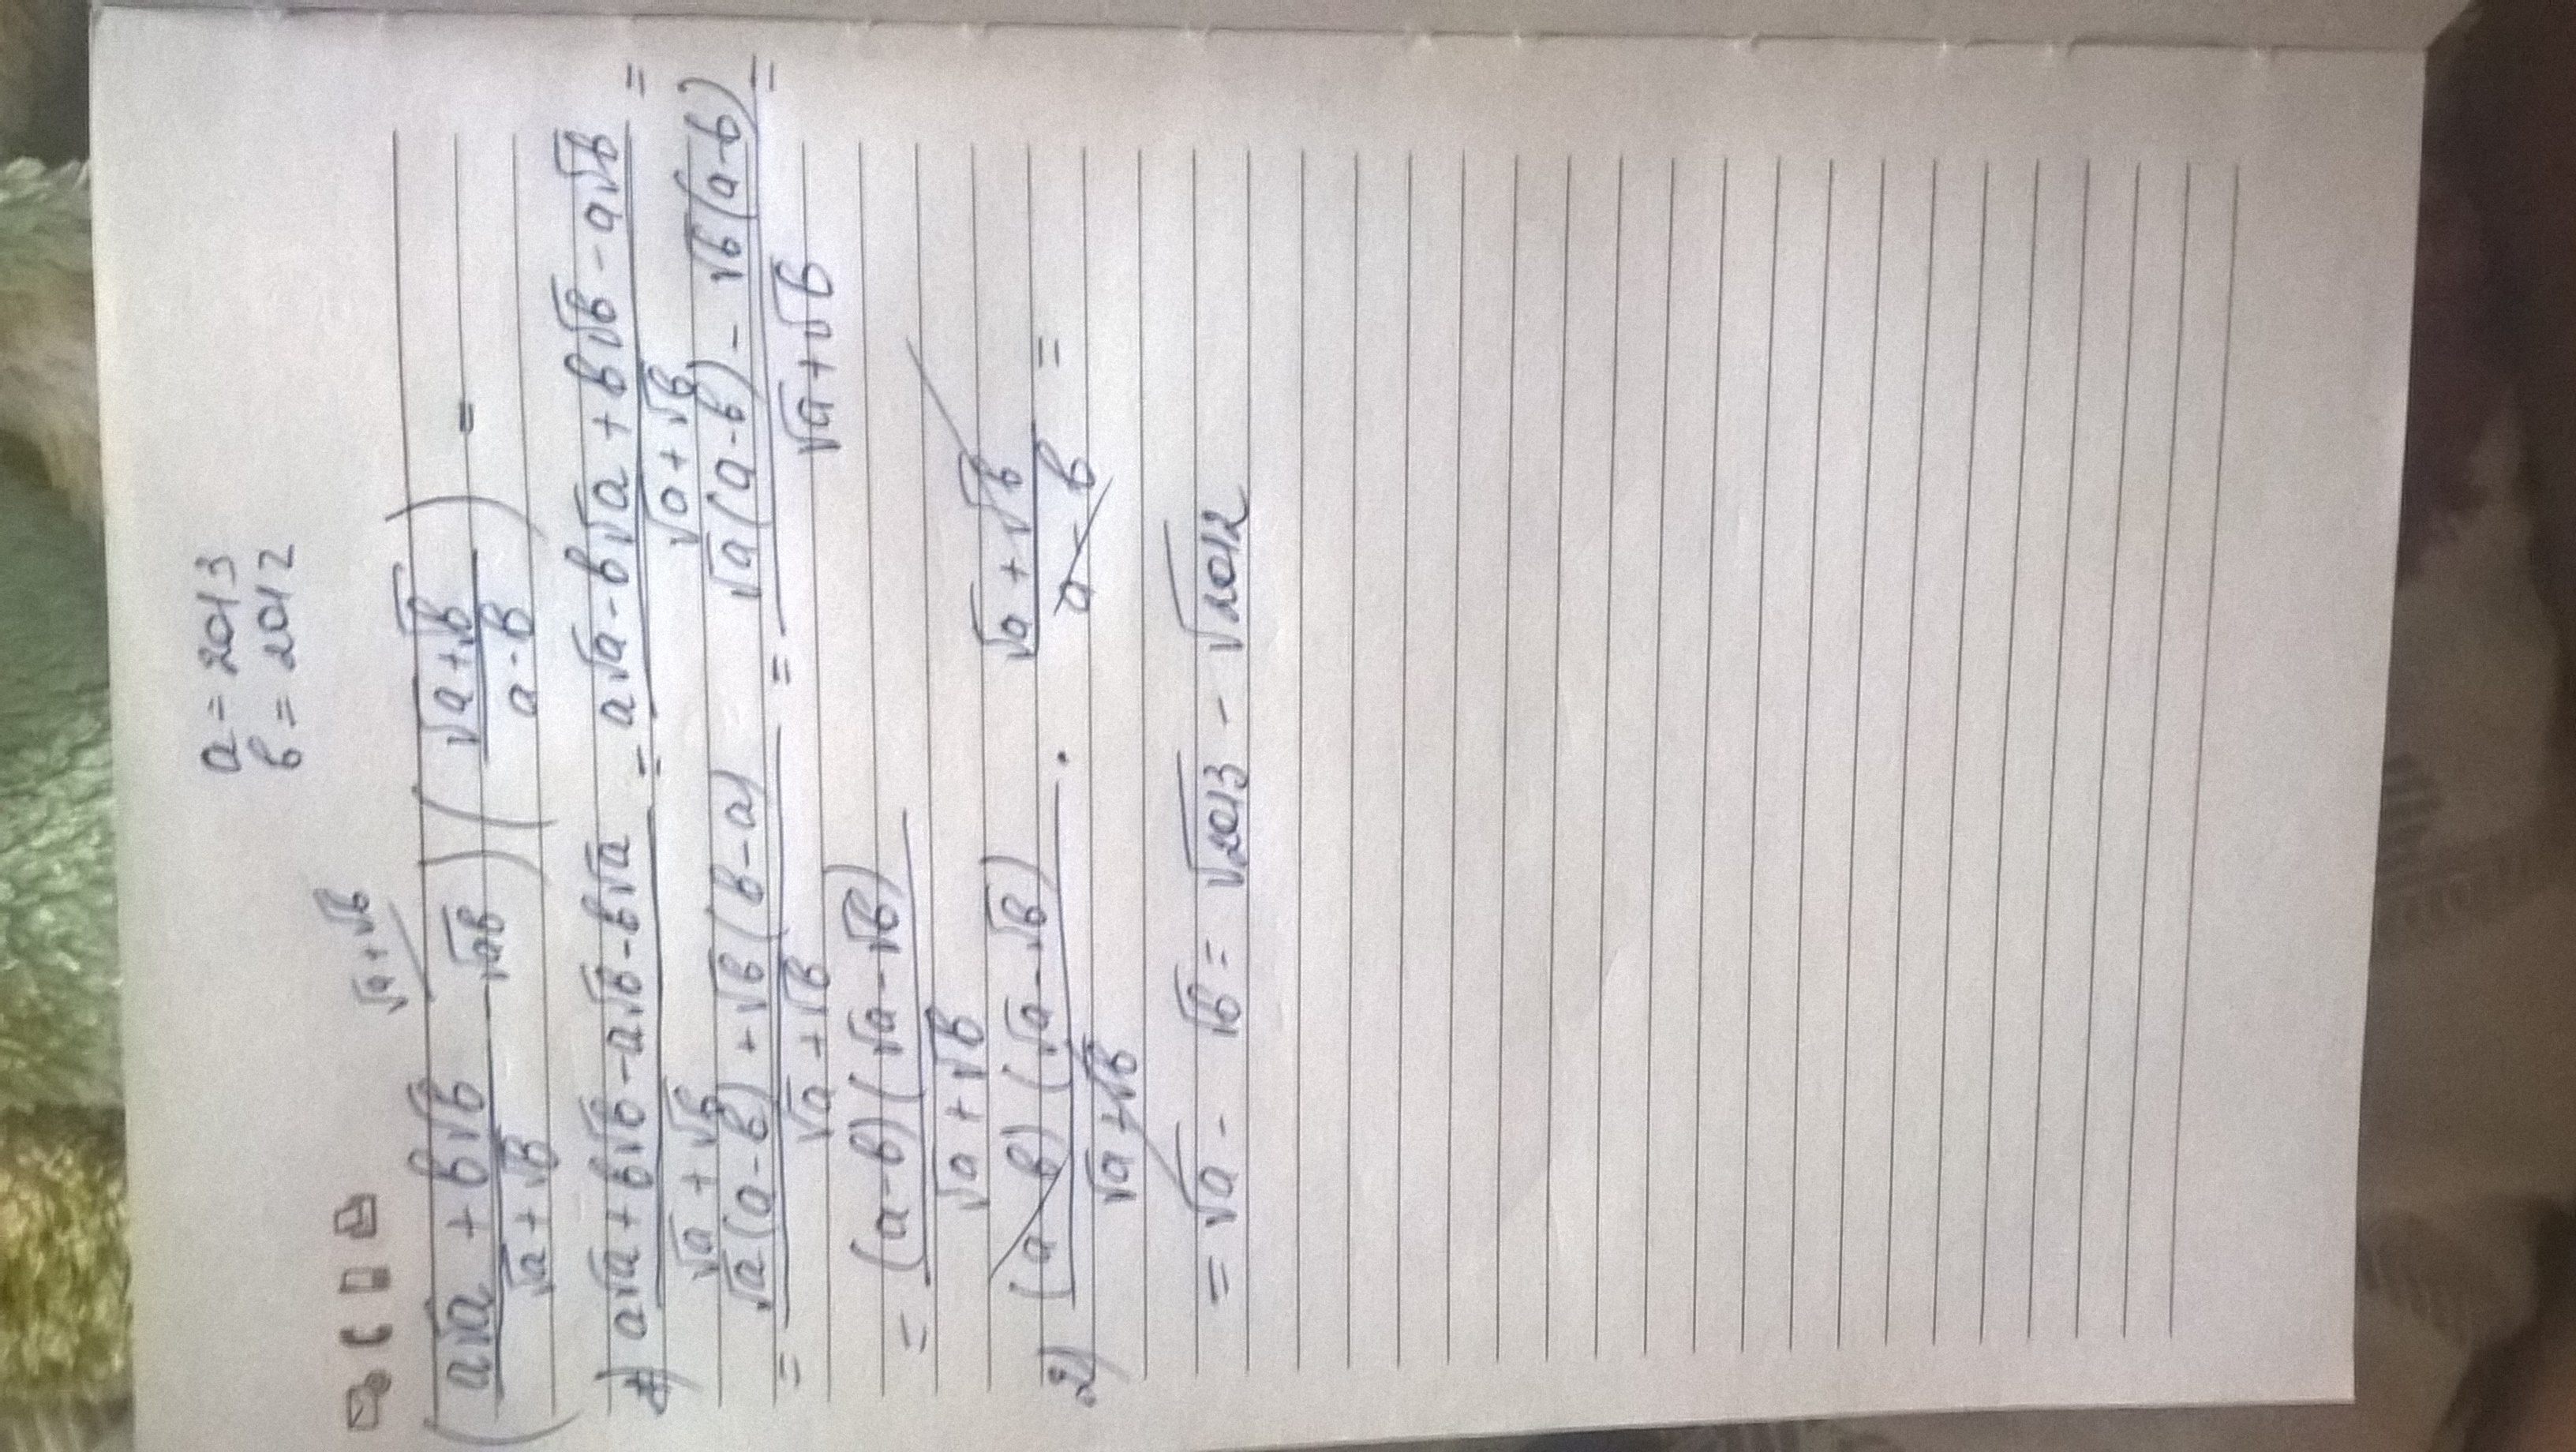 a = 2013
b = 2012
√a+√b
(a√a + b√b / √a + √b - √ab) (√a+√b / a-b) =
1) a√a + b√b - a√b - b√a / √a + √b = a√a - b√a + b√b - a√b / √a + √b =
= √a(a-b) + √b(b-a) / √a + √b = √a(a-b) - √b(a-b) / √a+√b =
= (a-b)(√a-√b) / √a + √b
2) (a-b)(√a-√b) / √a+√b · √a+√b / a-b =
= √a - √b = √2013 - √2012